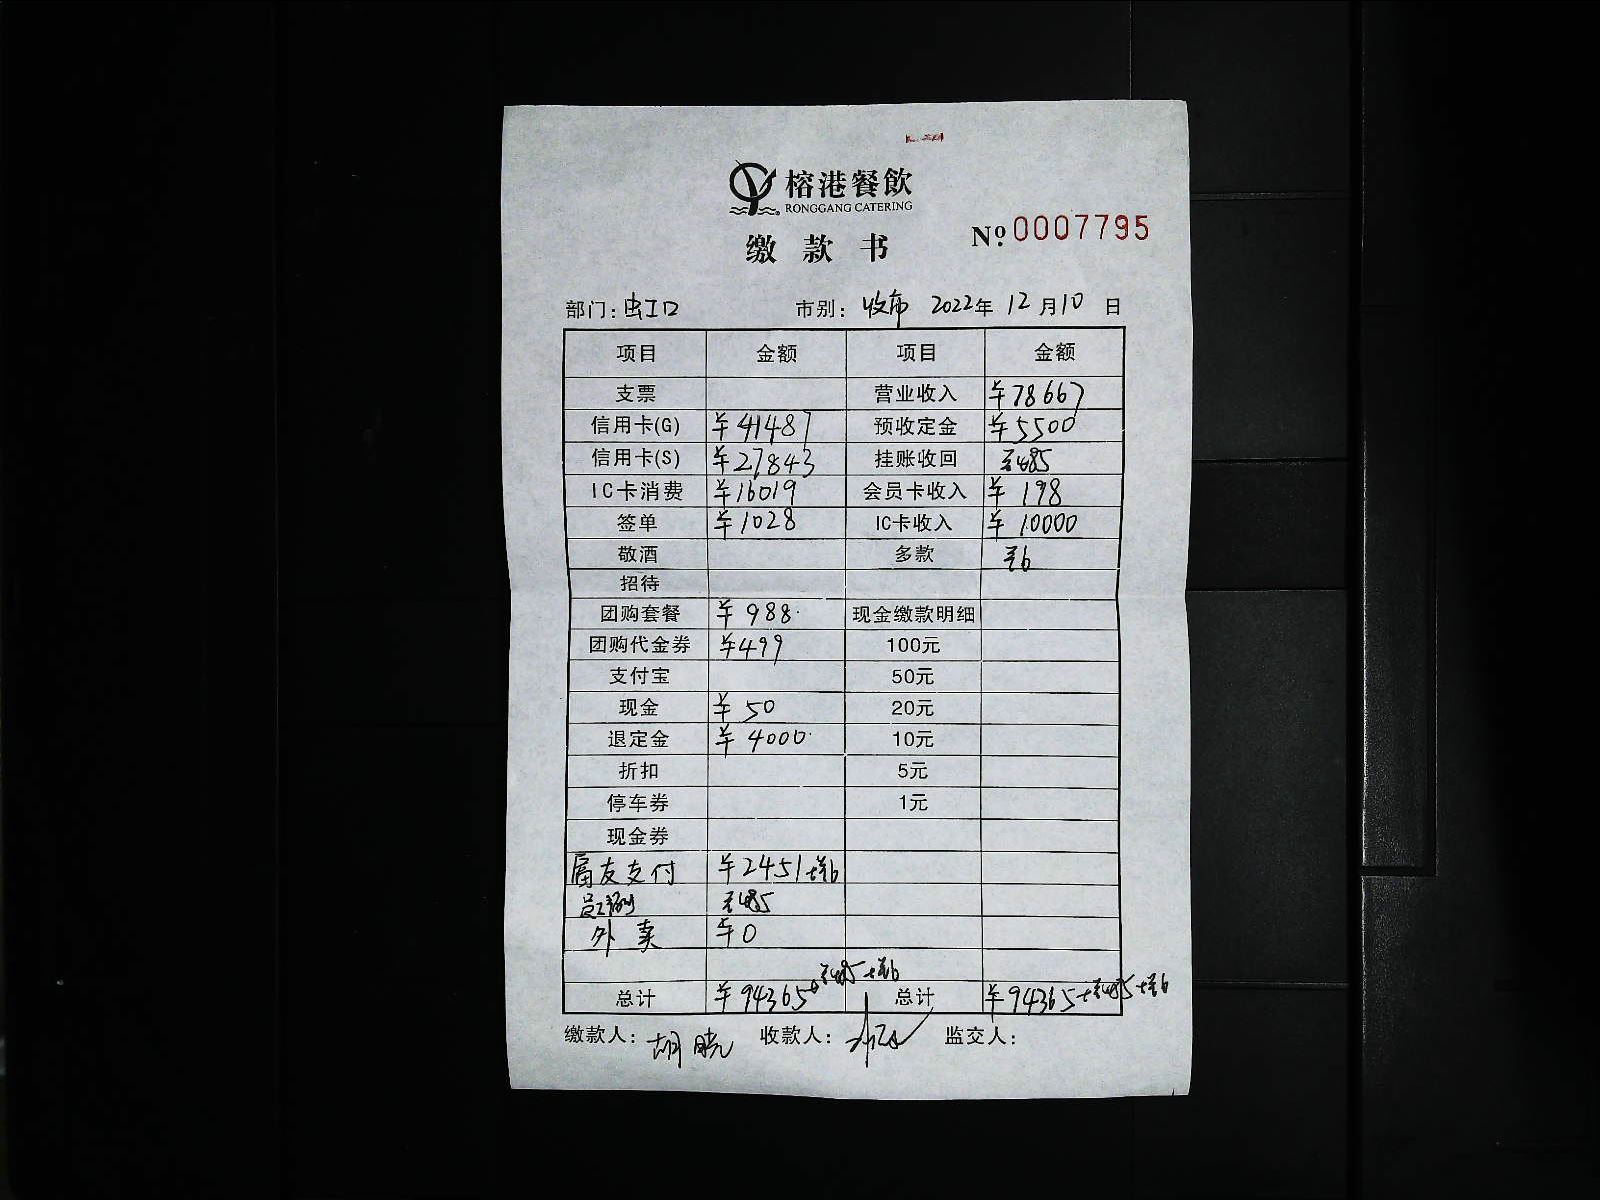 榕港餐飲
RONGGANG CATERING
缴款书 Nº 0007795
部门: 虹口 市别: 收市 2022年 12月10日
项目 金额 项目 金额
支票 营业收入 ¥78667
信用卡(G) ¥41487 预收定金 ¥5500
信用卡(S) ¥27843 挂账收回 ¥485
IC卡消费 ¥16019 会员卡收入 ¥198
签单 ¥1028 IC卡收入 ¥10000
敬酒 多款 ¥6
招待
团购套餐 ¥988 现金缴款明细
团购代金券 ¥499 100元
支付宝 50元
现金 ¥50 20元
退定金 ¥4000 10元
折扣 5元
停车券 1元
现金券
富友支付 ¥2451+¥6
¥485
外卖 ¥0
总计 ¥94365+¥485+¥6 总计 ¥94365+¥485+¥6
缴款人: 胡晓 收款人: 监交人: